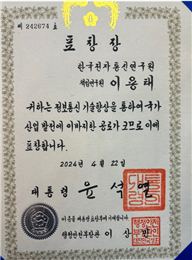 제 242674 호
표창장
한국전자통신연구원
책임연구원 이용태
귀하는 정보통신 기술향상을 통하여 국가
산업 발전에 이바지한 공로가 크므로 이에
표창합니다.
2024년 4월 22일
대통령 윤석열
이 증을 대통령 표창부에 기입합니다.
행정안전부장관 이상민